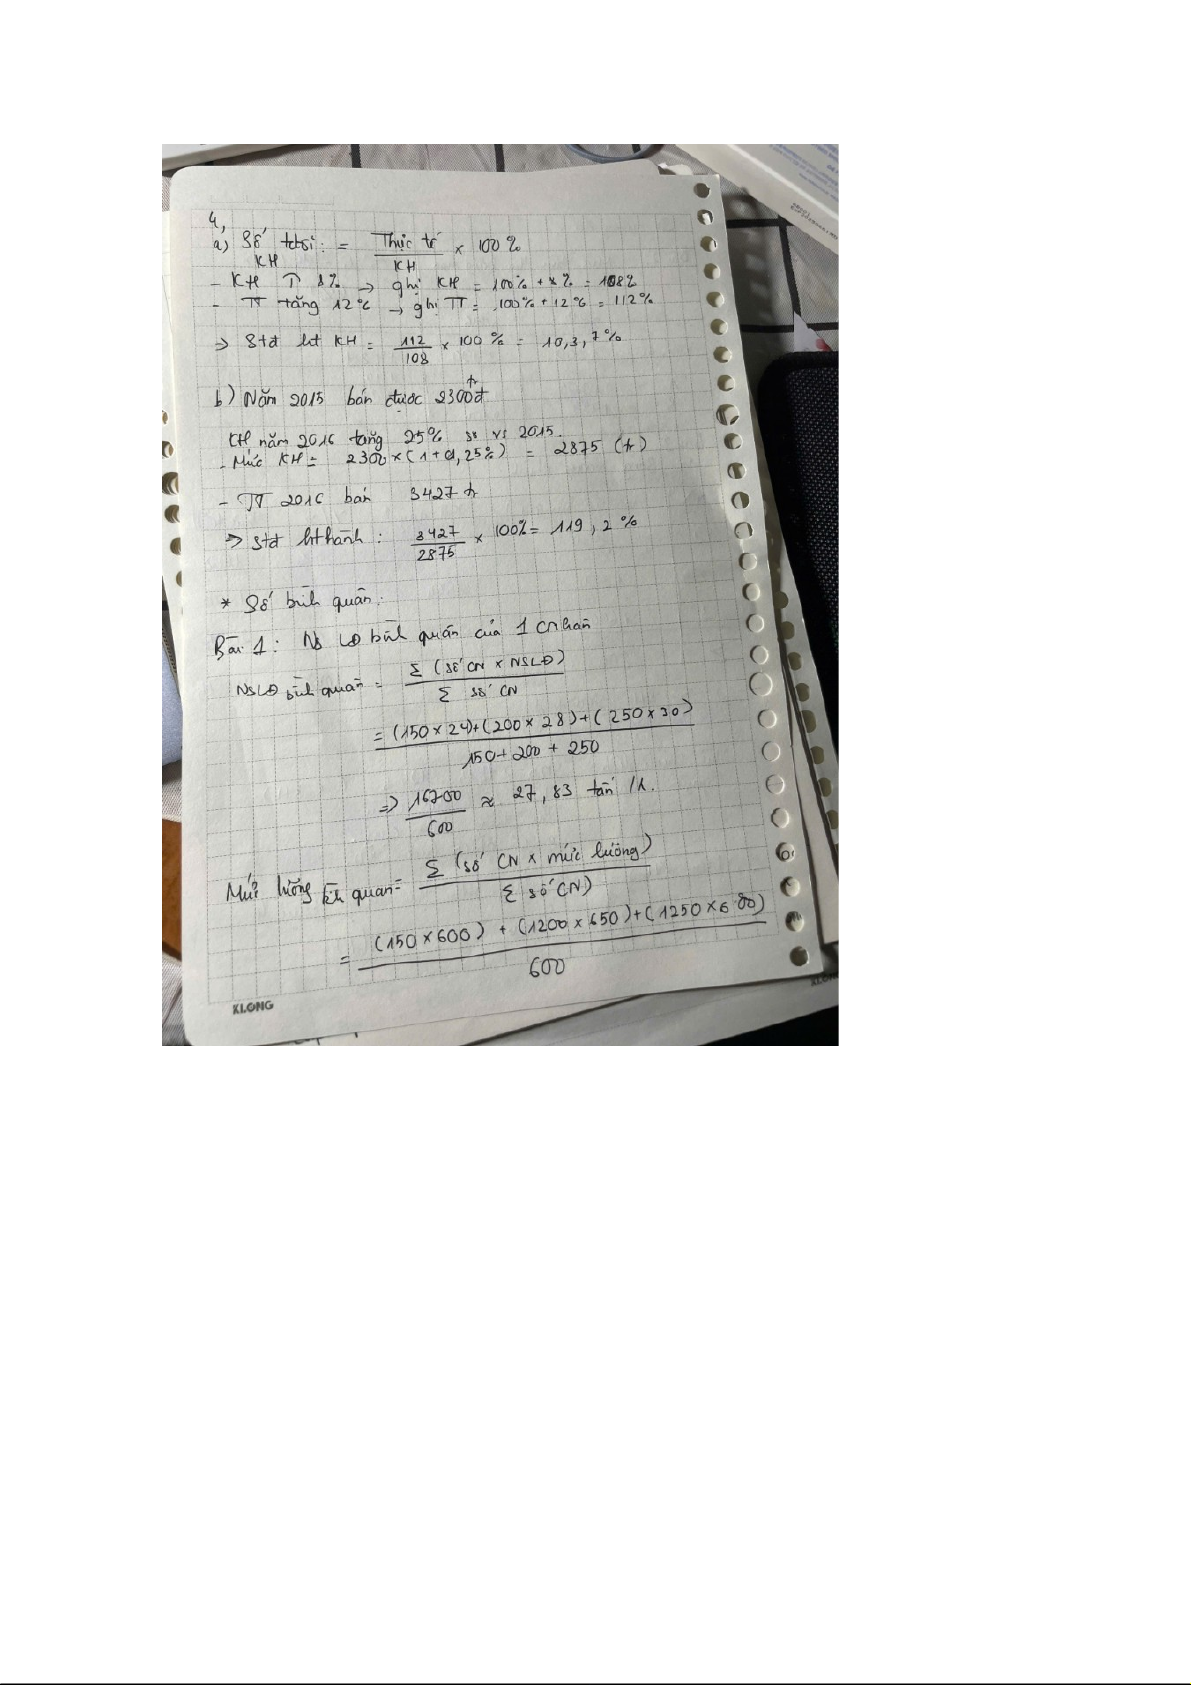 4,
a) Số tđối: = Thực tế / KH × 100%
KH
- KH ↑ 8% → ghị KH = 100% + 8% = 108%
- TT tăng 12% → ghị TT = 100% + 12% = 112%
=> Stđ ht KH = 112/108 × 100% = 10,3,7%
b) Năm 2015 bán được 2300trđ
KH năm 2016 tăng 25% so vs 2015.
- Mức KH = 2300 × (1 + 0,25%) = 2875 (tr)
- TT 2016 bán 3427 tr
=> Stđ hthành: 3427/2875 × 100% = 119,2%
* Số bình quân:
Bài 1: NS LĐ bình quân của 1 CNhân
NSLĐ bình quân = Σ (số CN × NSLĐ) / Σ số CN
= (150 × 24) + (200 × 28) + (250 × 30) / 150 + 200 + 250
=> 16700/600 ≈ 27,83 tấn /
Mức lương bình quân = Σ (số CN × mức lương) / Σ số CN)
= (150 × 600) + (1200 × 650) + (1250 × 6 00) / 600
KLONG